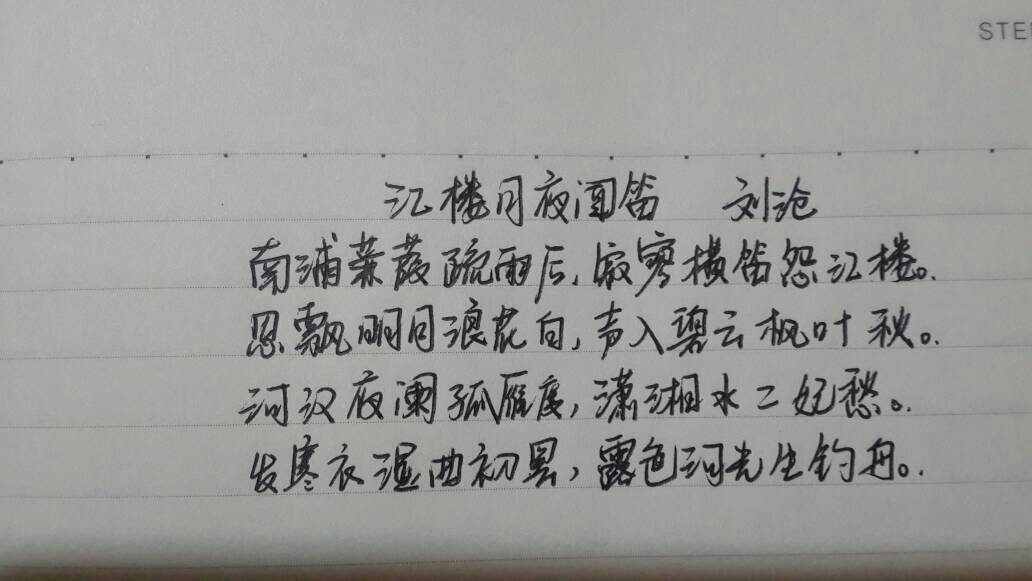 STE
江楼月夜闻笛 刘沧
南浦蒹葭疏雨后,寂寥横笛怨江楼。
思飘明月浪花白,声入碧云枫叶秋。
河汉夜阑孤雁度,潇湘水二妃愁。
发寒衣湿曲初罢,露色河光生钓舟。